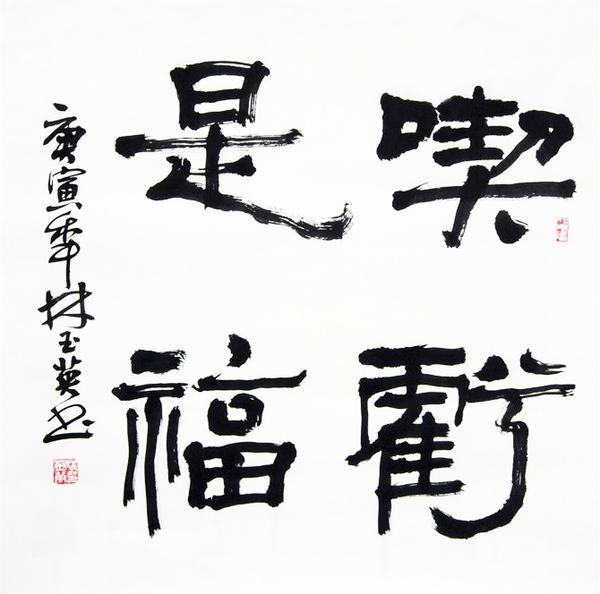 喫虧
是福
庚寅年林玉英书